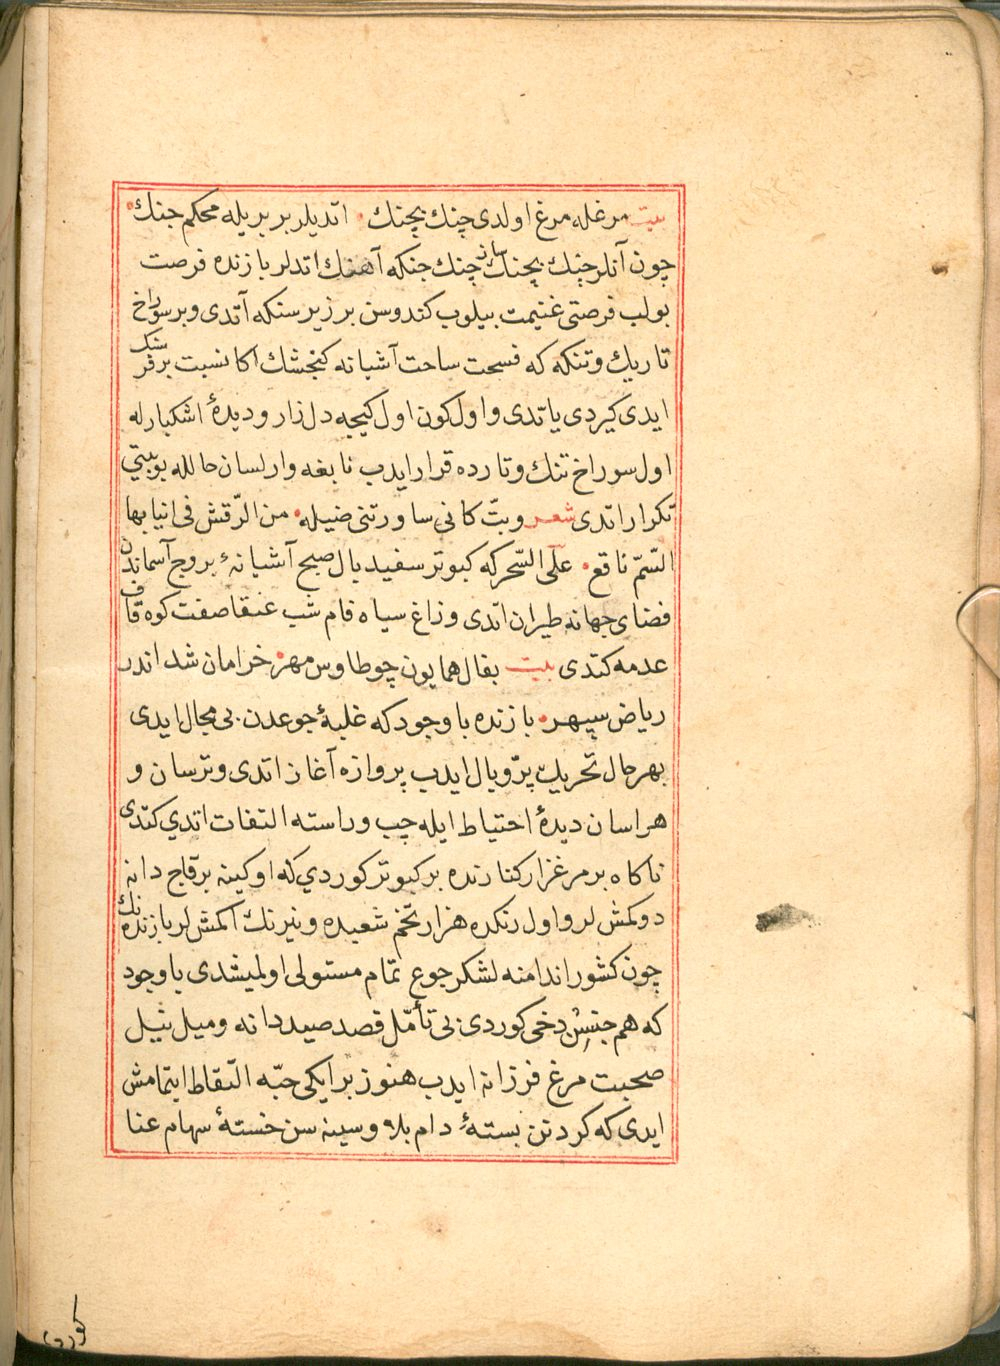 بيت مرغله مرغ اولدى چنك بچنك • اتديلر بر بريله محكم جنك •
چون آنلر چنك بچنك سازنه چنك جنكه آهنك اتدلر بازنده فرصت
بولب فرصتى غنيمت بيلوب كندوسن بر زير سنكه آتدى وبر سوراخ
تاريك وتنكه كه فسحت ساحت آشيانه كنجشك اكا نسبت بر فرسنك
ايدى كيردى ياتدى واول كون اول كيجه دل زار وديدۀ اشكبارله
اول سوراخ تنك وتارده قرار ايدب نابغه وار لسان حالله بو بيتى
تكرار اتدى شعر وبتّ كانى ساورتنى ضيله • من الرّقش فى انيابها
السّمّ ناقع • علّى السّحر كه كبوتر سفيد بال صبح آشيانۀ بروج آسماندن
فضاى جهانه طيران اتدى وزاغ سياه فام شب عنقا صفت كوه قاف
عدمه كتدى بيت بفال همايون چو طاوس مهر • خرامان شد اندر
رياض سپهر • بازنده باوجود كه غلبۀ جوعدن بى مجال ايدى
بهر حال تحريك پرّ وبال ايدب پروازه آغاز اتدى وترسان و
هراسان ديدۀ احتياط ايله چپ وراسته التفات اتدي كتدى
ناكاه بر مرغزار كنارنده بر كبوتر كوردي كه اوكينه بر قاچ دانه
دوكمش لر واول رنكده هزار تخم شعبده ونيرنك اكمش لر بازنده نك
چون كشور اندامنه لشكر جوع تمام مستولى اولمشدى باوجود
كه هم جنسن دخى كوردى بى تأمّل قصد صيد دانه وميل نيل
صحبت مرغ فرزانه ايدب هنوز بر ايكى حبّه التقاط ايتمامش
ايدى كه كردنن بستۀ دام بلا وسينه سن خستۀ سهام عنا
كوردى